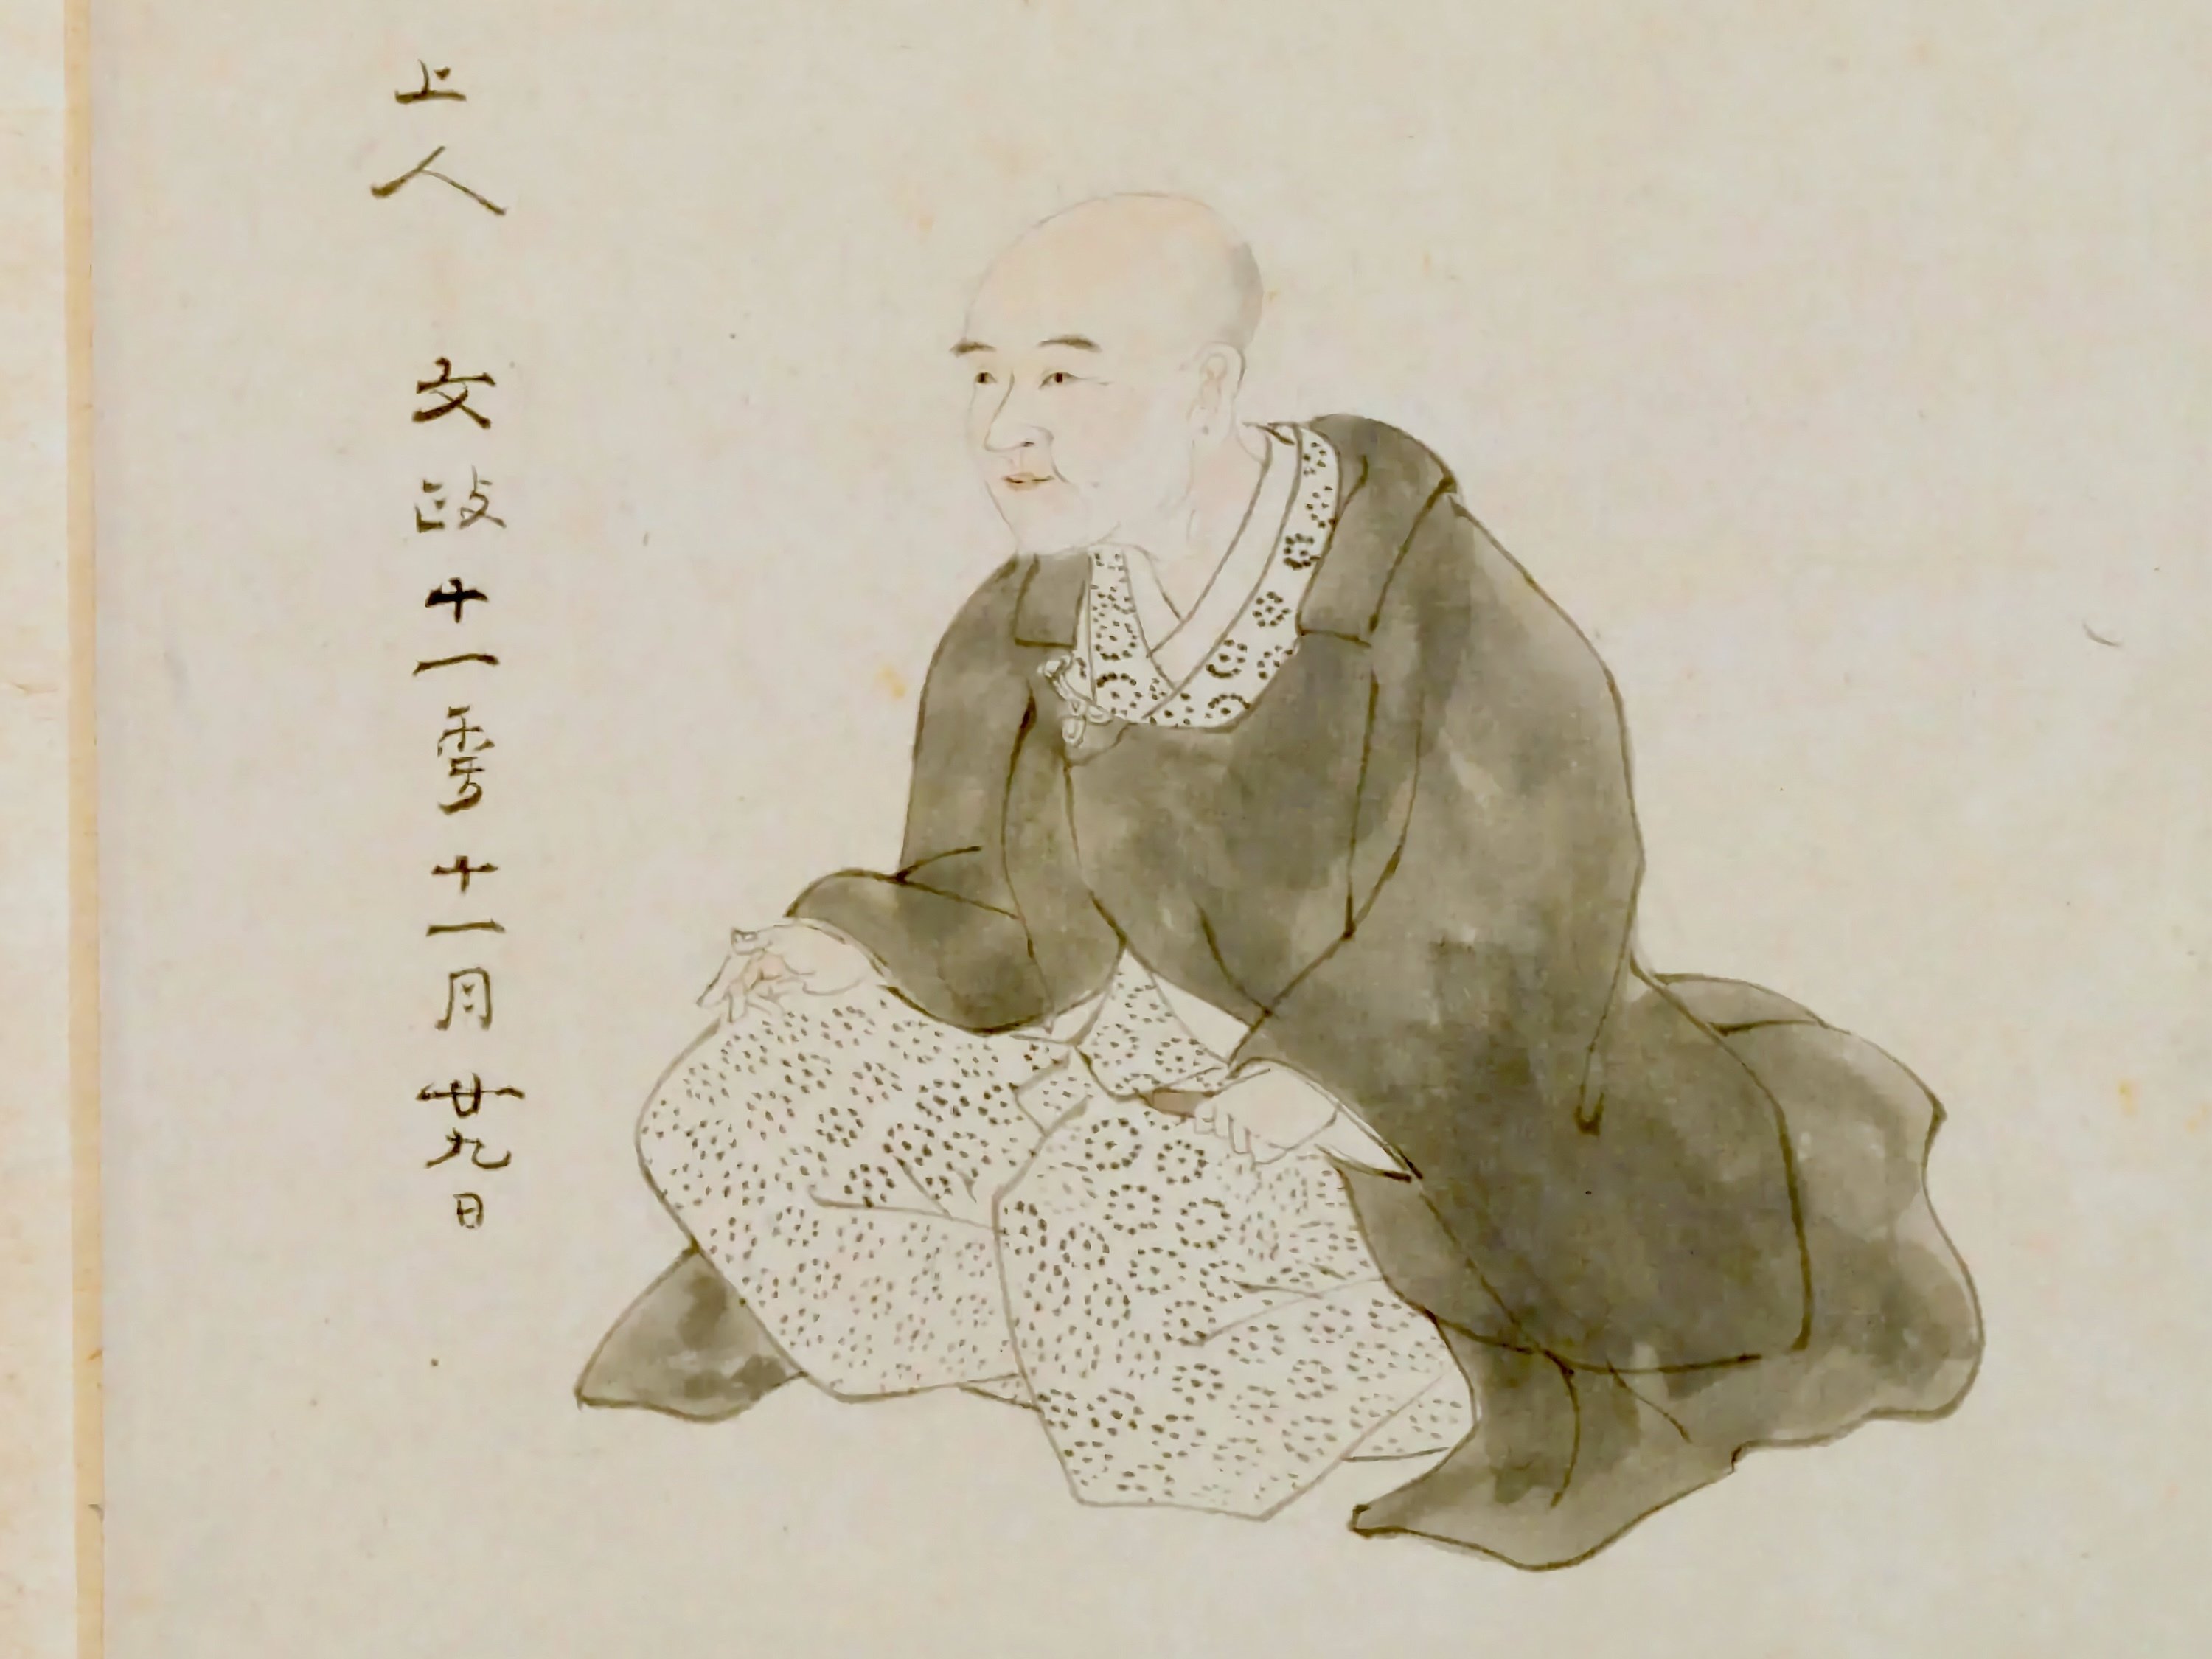 上人　文政十一十一月廿九日